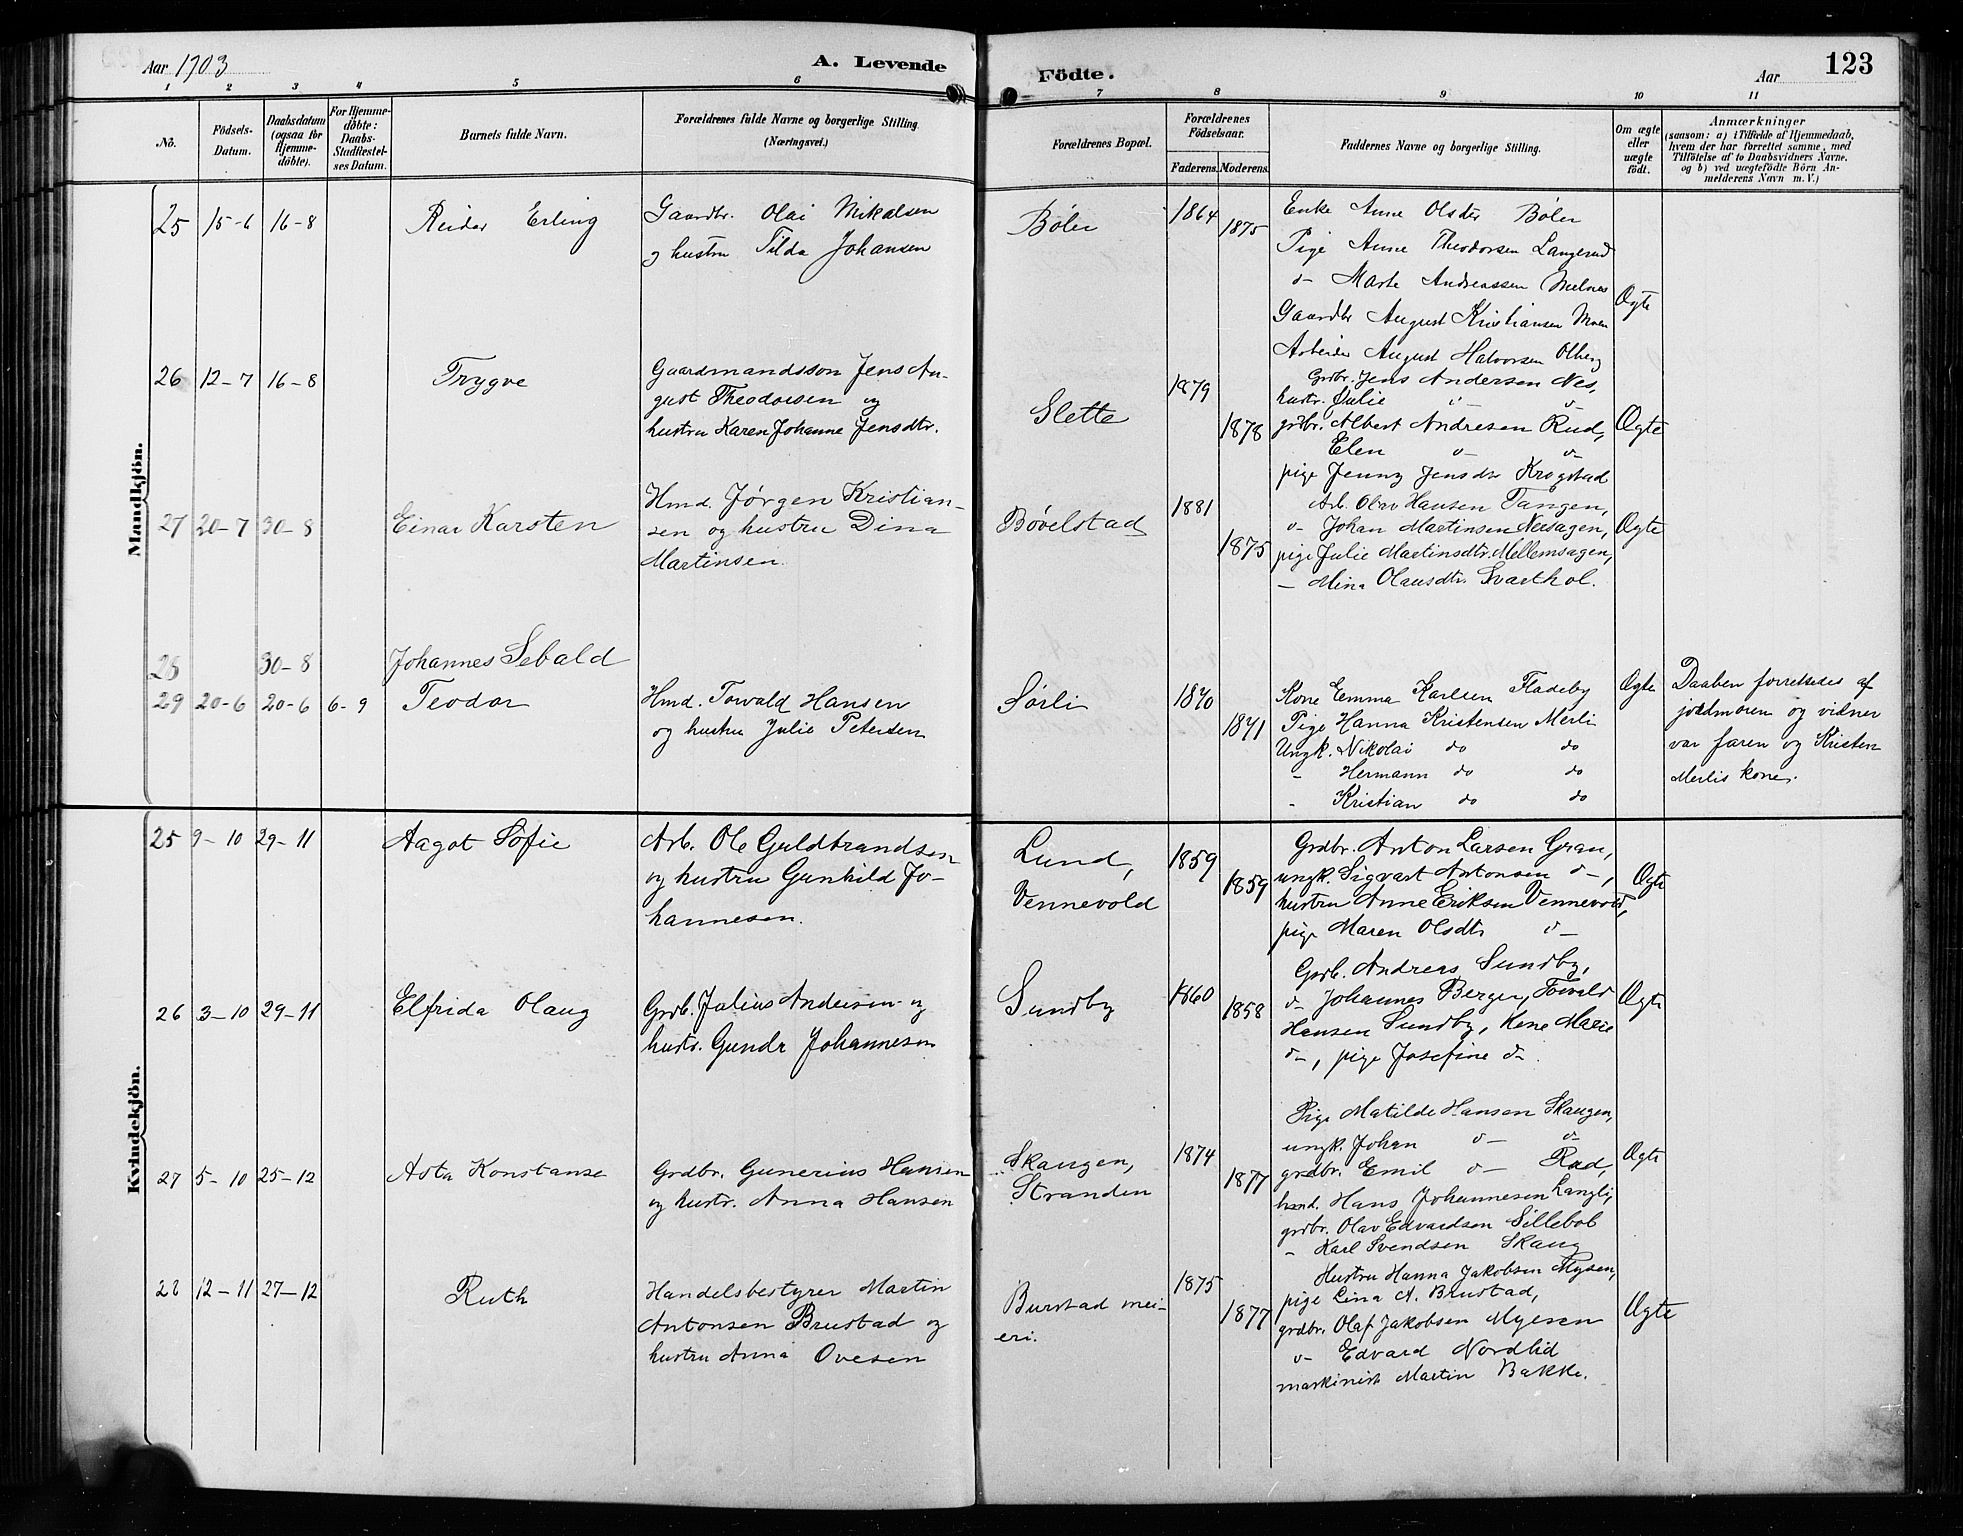 Aar 1903
A. Levende
Födte.
Aar
123
1 2 3 4 5 6 7 8 9 10 11
No.
Födsels-
Datum.
Daabsdatum
(ogsaa for
Hjemme-
döbte).
For Hjemme-
döbte:
Daabs-
Stadfæstel-
ses Datum.
Barnets fulde Navn.
Forældrenes fulde Navne og borgerlige Stilling.
(Næringsvei.)
Forældrenes Bopæl.
Forældrenes
Födselsaar.
Faderens. Moderens.
Faddernes Navne og borgerlige Stilling.
Om ægte
eller
uægte
födt.
Anmærkninger
(saasom: a) i Tilfælde af Hjemmedaab,
hvem der har forrettet samme, med
Tilföielse af to Daabsvidners Navne.
og b) ved uægtefödte Börn An-
melderens Navn m. V.)
Mandkjön.
25 15-6 16-8
Reidar Erling
Gaardbr. Olai Mikalsen
og hustru Tilda Johansen
Bøler
1864
1875
Enke Anne Olsdtr Bøler
Pige Anne Theodorsen Langerud
d- Marte Andreassen Melnes
Gaardbr August Kristiansen Moen
Arbeider August Halvorsen Olberg
Ægte
26 12-7 16-8
Trygve
Gaardmandssøn Jens Au-
gust Theodorsen og
hustru Karen Johanne Jensdtr.
Slette
1879
1878
Grdbr. Jens Andersen Nes,
hustr. Julie d- d-
grdbr. Albert Andresen Rud,
Elen d- d-
pige Jenny Jensdtr Krogstad
Ægte
27 20-7 30-8
Einar Karsten
Hmd. Jørgen Kristian-
sen og hustru Dina
Martinsen.
Bøvelstad
1881
1875
Arb. Olav Hansen Tangen,
d- Johan Martinsen Nesagen,
pige Julie Martinsdtr. Mellemsagen,
- Mina Olausdtr. Svarthol.
Ægte
28 30-8
Johannes Sebald
29 20-6 20-6 6-9
Teodor
Hmd. Torvald Hansen
og hustru Julie Petersen
Sørli
1870
1871
Kone Emma Karlsen Fladeby
Pige Hanna Kristensen Merli
Ungk. Nikolai do do
- Hermann do do
- Kristian do do
Ægte
Daaben forrettedes af
jordmoren og vidner
var faren og Kristen
Merlis kone.
Kvindekjön.
25 9-10 29-11
Aagot Sofie
Arb. Ole Guldbrandsen
og hustru Gunhild Jo-
hannesen.
Lund,
Vennevold
1859
1859
Grdbr. Anton Larsen Gran,
ungk. Sigvart Antonsen d-,
hustru Anne Eriksen Vennevold,
pige Maren Olsdtr d-
Ægte
26 3-10 29-11
Elfrida Olaug
Grdb. Julius Andersen og
hustr. Gunda Johannesen
Sundby
1860
1858
Grdb. Andreas Sundby,
d- Johannes Berger, Torvald
Hansen Sundby, Kone Marie
d-, pige Josefine d-.
Ægte
27 5-10 25-12
Asta Konstanse
Grdbr. Gunerius Hansen
og hustr. Anna Hansen
Skaugen,
Stranden
1874
1877
Pige Matilde Hansen Skaugen,
ungk. Johan d- d-
grdbr. Emil d- Rud,
hmd. Hans Johannesen Langli,
grdbr. Olav Edvardsen Sillebøl
- Karl Svendsen Skaug
Ægte
28 12-11 27-12
Ruth
Handelsbestyrer Martin
Antonsen Brustad og
hustru Anna Ovesen
Burstad mei-
eri.
1875
1877
Hustru Hanna Jakobsen Mysen,
pige Lina A. Brustad,
grdbr. Olaf Jakobsen Mysen
d- Edvard Nordlid
maskinist Martin Bakke.
Ægte